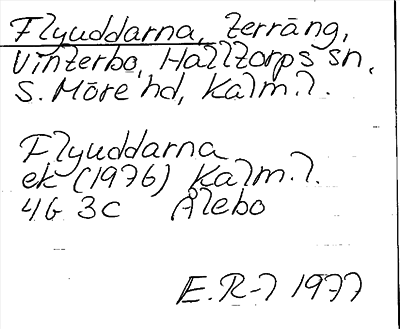 Flyuddarna, terräng,
Vinterbo, Halltorps sn,
S. Möre hd, Kalm. l.
Flyuddarna
ek (1976) Kalm. l.
4G 3c Ålebo
E. R-l 1977